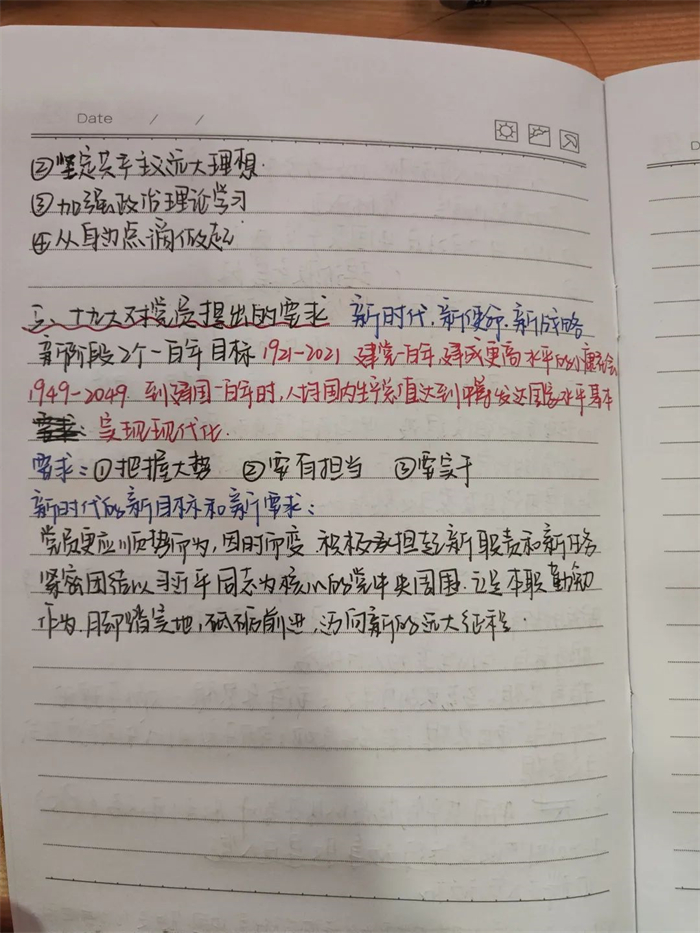 Date / /
②坚定共产主义远大理想.
③加强政治理论学习
④从自身点滴做起
三、十九大对党员提出的要求 新时代,新使命,新战略
新阶段2个一百年目标 1921-2021 建党一百年,建成更高水平的小康社会
1949-2049 到建国一百年时,人均国内生产总值达到中等发达国家水平基本
实现现代化.
要求:①把握大势 ②要有担当 ③要实干
新时代的新目标和新要求:
党员更应顺势而为,因时而变 积极承担起新职责和新任务
紧密团结以习近平同志为核心的党中央周围.立足本职勤勉
作为.脚踏实地,砥砺前进,迈向新的远大征程.
D